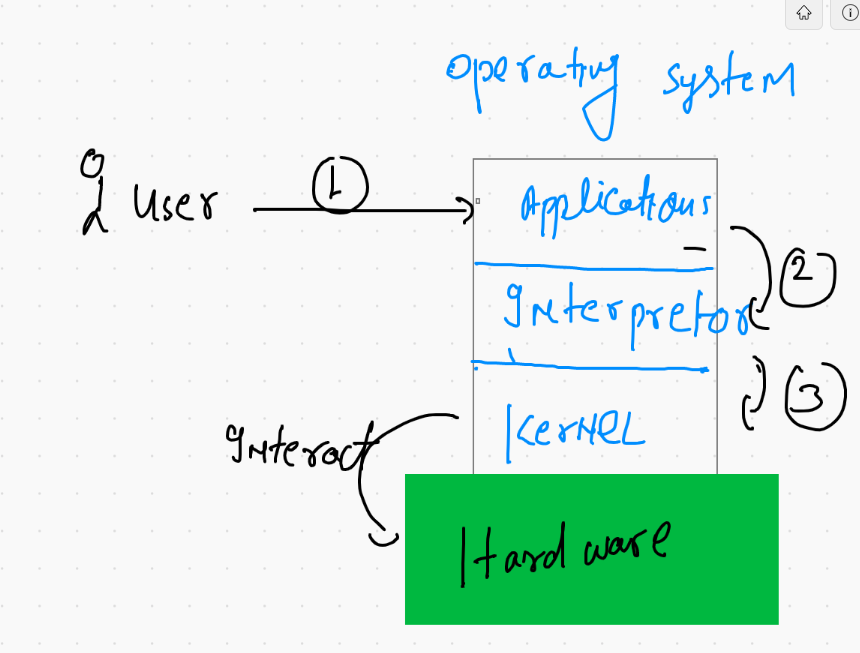 Operating System
1
User
Applications
2
Interpretor
3
Kernel
Interact
Hardware